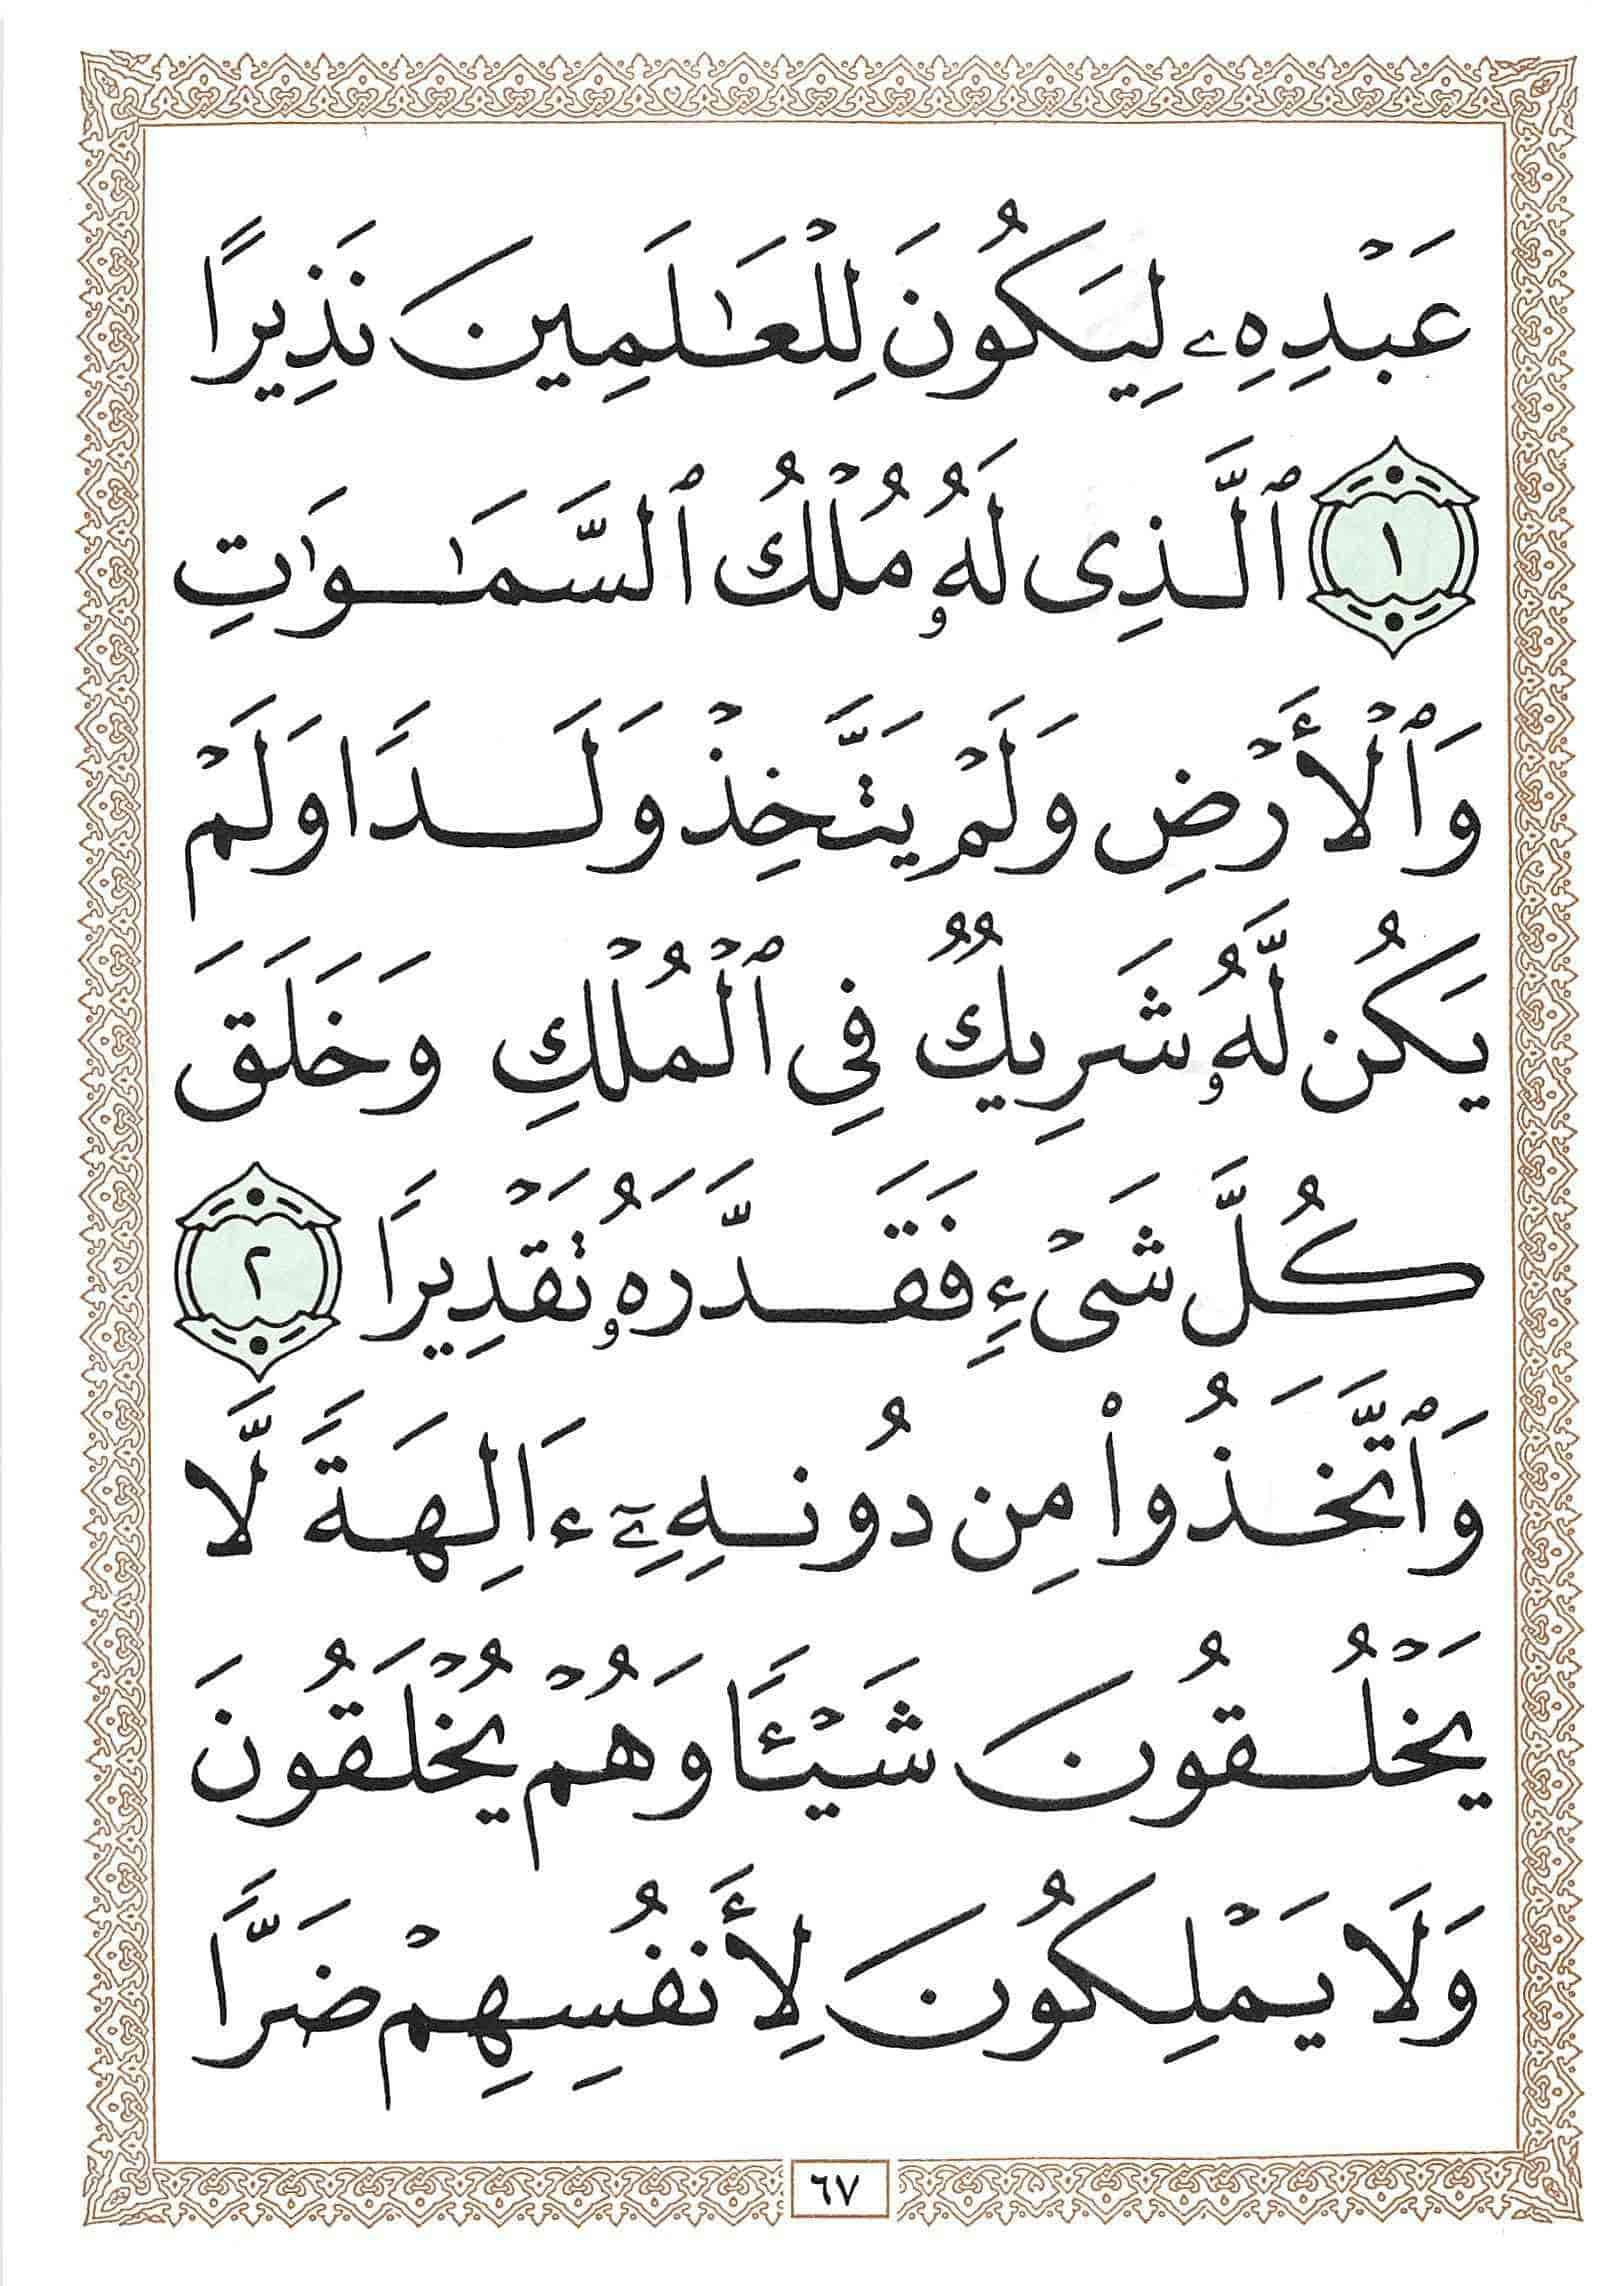 عَبْدِهِۦ لِيَكُونَ لِلْعَـٰلَمِينَ نَذِيرًا
١ ٱلَّذِى لَهُۥ مُلْكُ ٱلسَّمَـٰوَٰتِ
وَٱلْأَرْضِ وَلَمْ يَتَّخِذْ وَلَدًا وَلَمْ
يَكُن لَّهُۥ شَرِيكٌ فِى ٱلْمُلْكِ وَخَلَقَ
كُلَّ شَىْءٍ فَقَدَّرَهُۥ تَقْدِيرًا ٢
وَٱتَّخَذُوا۟ مِن دُونِهِۦٓ ءَالِهَةً لَّا
يَخْلُقُونَ شَيْـًٔا وَهُمْ يُخْلَقُونَ
وَلَا يَمْلِكُونَ لِأَنفُسِهِمْ ضَرًّا
٦٧